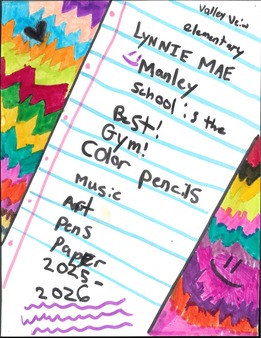 Valley View
elementary
LYNNIE MAE
Manley
School is the
Best!
Gym!
Color Pencils
Music
Art
Pens
Paper
2025-
2026